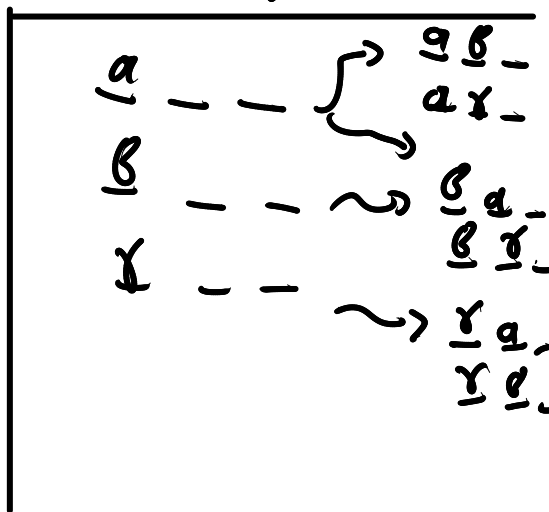 α _ _
α β _
α γ _
β _ _
β α _
β γ _
γ _ _
γ α _
γ β _